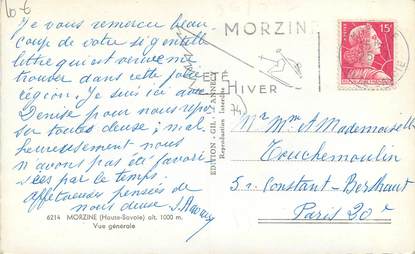 10 €
Je vous remercie beau-
coup de votre si gentille
lettre qui est venue me
trouver dans cette jolie
région. Je suis ici avec
Denise pour nous repo-
ser toutes deux ; mal-
heureusement nous
n'avons pas été favori-
sées par le temps.
affectueuses pensées de
nous deux
6214 MORZINE (Haute-Savoie) alt. 1000 m.
Vue générale
EDITION - GIL - ANNECY
Reproduction Interdite
MORZINE
ETÉ
HIVER
15F
74
Mr Mme A Mademoiselle
Truchemoulin
51 Constant-Berthaut
Paris 20e